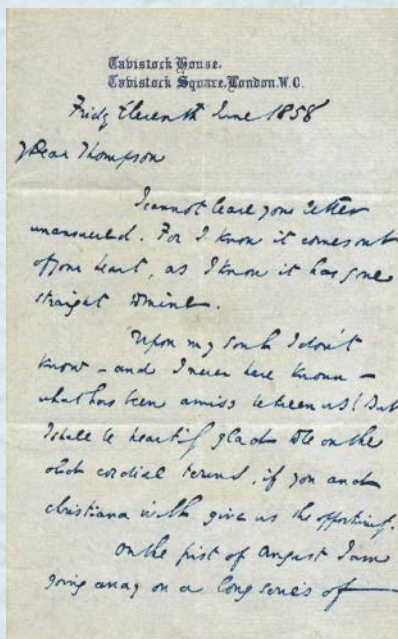 Tavistock House.
Tavistock Square. London. W.C.
Friday Eleventh June 1858
My Dear Thompson
I cannot leave your letter
unanswered. For I know it comes out
of your heart, as I know it has gone
straight to mine.
Upon my soul I don't
know – and I never have known –
what has been amiss between us! But
I shall be heartily glad to be on the
old cordial terms, if you and
Christiana will give us the opportunity.
On the first of August I am
going away on a long series of